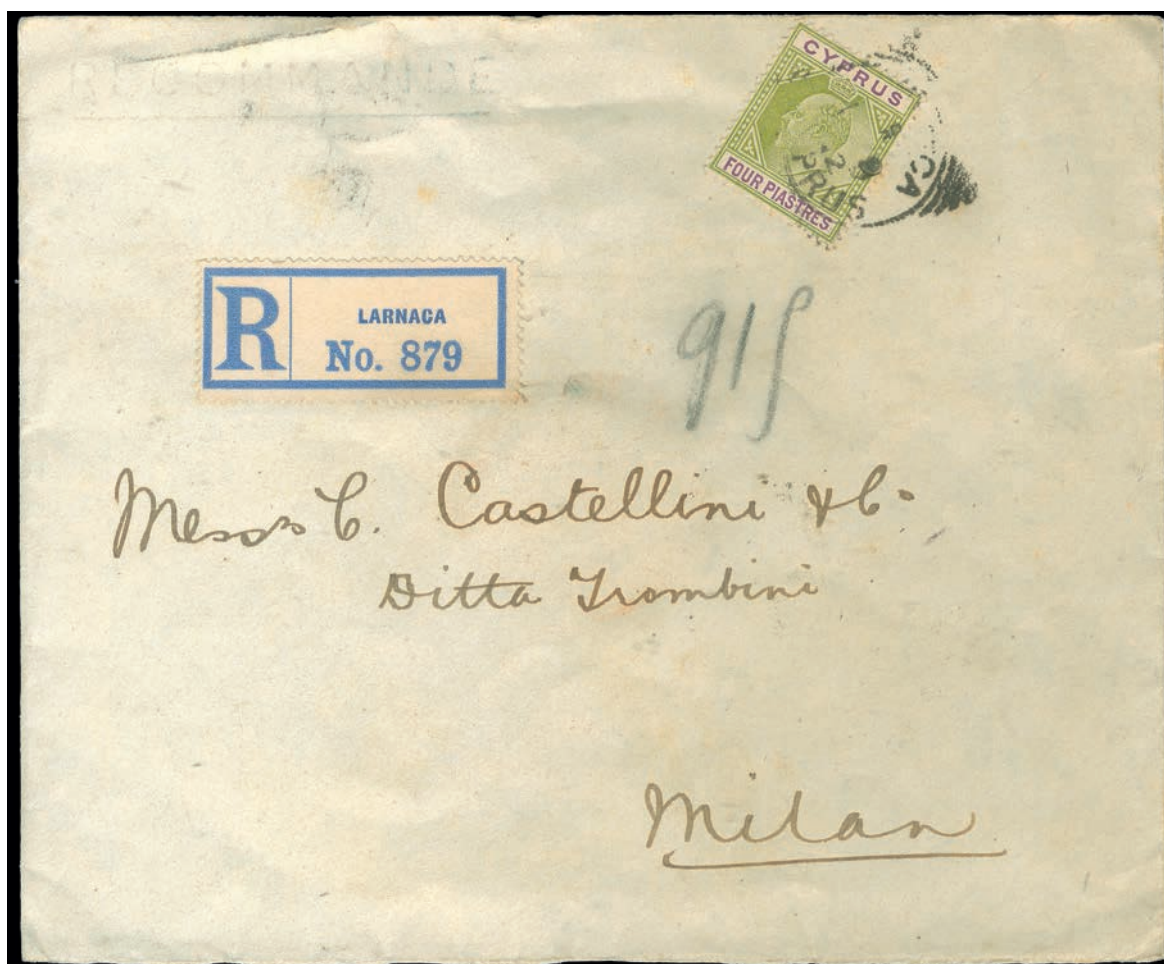 RECOMMANDÉE
CYPRUS
FOUR PIASTRES
CA
PRUS
R
LARNACA
No. 879
915
Messrs C. Castellini & Co.
Ditta Trombini
Milan